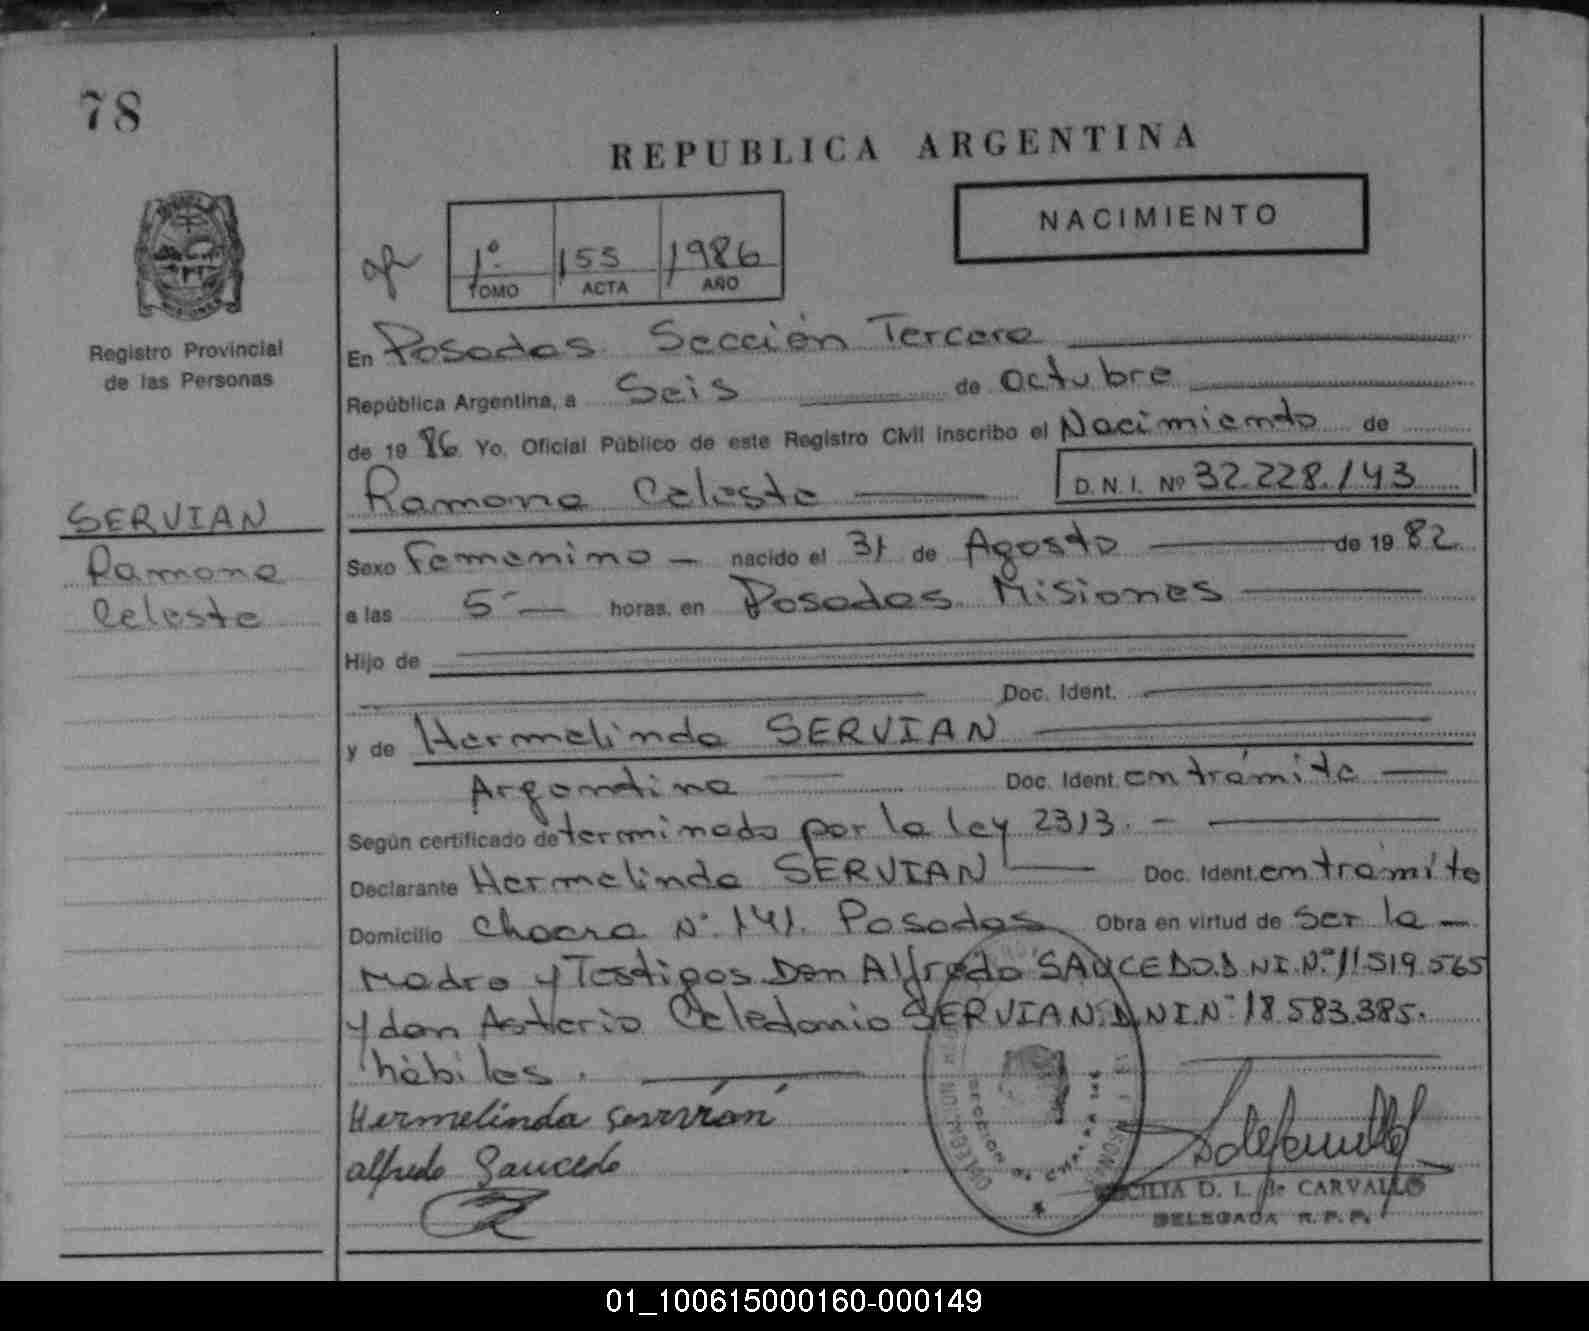 78
REPUBLICA ARGENTINA
NACIMIENTO
1º 155 1986
TOMO ACTA AÑO
Registro Provincial
de las Personas
SERVIAN
Ramona
Celeste
En Posadas Sección Tercera
República Argentina, a Seis de octubre
de 1986 Yo, Oficial Público de este Registro Civil inscribo el Nacimiento de
Ramona Celeste D.N.I. Nº 32.228.143
Sexo Femenino - nacido el 31 de Agosto de 1982
a las 5 horas, en Posadas Misiones
Hijo de
Doc. Ident.
y de Hermelinda SERVIAN
Argentina Doc. Ident. en trámite
Según certificado determinado por la ley 2313. -
Declarante Hermelinda SERVIAN Doc. Ident. en trámite
Domicilio Chacra Nº 141. Posadas Obra en virtud de Ser la
Madre y Testigos Don Alfredo SAUCEDO D.NI.Nº 11.519.565
y don Asterio Celedonio SERVIAN D.NI.Nº 18.583.385.
hábiles.
Hermelinda Servián
alfredo Saucedo
CECILIA D. L. de CARVALLO
DELEGADA R.P.P.
01_100615000160-000149